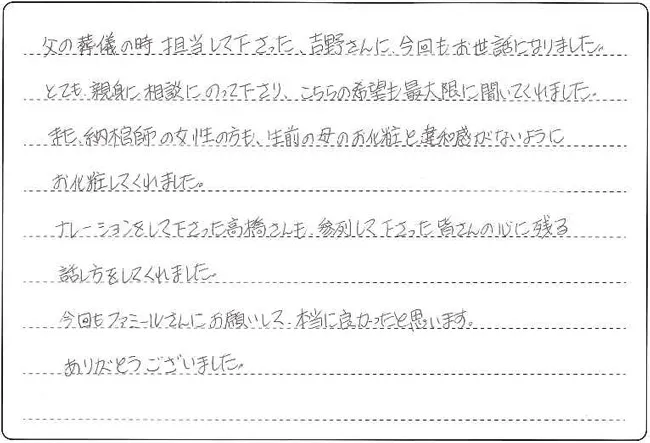 父の葬儀の時担当して下さった、吉野さんに、今回もお世話になりました。
とても、親身に相談にのって下さり、こちらの希望も最大限に聞いてくれました。
また、納棺師の女性の方も、生前の母のお化粧と違和感がないように
お化粧してくれました。
ナレーションをして下さった高橋さんも、参列して下さった皆さんの心に残る
話し方をしてくれました。
今回もファミールさんにお願いして、本当に良かったと思います。
ありがとうございました。